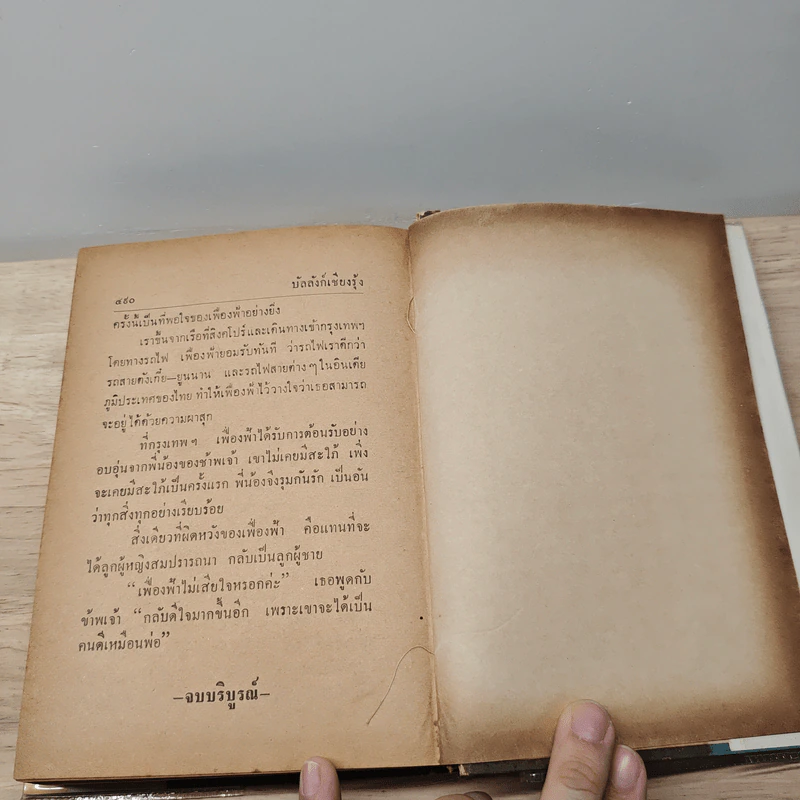 ๔๙๐
บัลลังก์เชียงรุ้ง
ครั้งนี้เป็นที่พอใจของเฟื่องฟ้าอย่างยิ่ง
เราขึ้นจากเรือที่สิงคโปร์และเดินทางเข้ากรุงเทพฯ
โดยทางรถไฟ เฟื่องฟ้ายอมรับทันที ว่ารถไฟเราดีกว่า
รถสายตังเกี๋ย—ยูนนาน และรถไฟสายต่างๆในอินเดีย
ภูมิประเทศของไทย ทำให้เฟื่องฟ้าไว้วางใจว่าเธอสามารถ
จะอยู่ได้ด้วยความผาสุก
ที่กรุงเทพฯ เฟื่องฟ้าได้รับการต้อนรับอย่าง
อบอุ่นจากพี่น้องของข้าพเจ้า เขาไม่เคยมีสะใภ้ เพิ่ง
จะเคยมีสะใภ้เป็นครั้งแรก พี่น้องจึงรุมกันรัก เป็นอัน
ว่าทุกสิ่งทุกอย่างเรียบร้อย
สิ่งเดียวที่ผิดหวังของเฟื่องฟ้า คือแทนที่จะ
ได้ลูกผู้หญิงสมปรารถนา กลับเป็นลูกผู้ชาย
“เฟื่องฟ้าไม่เสียใจหรอกค่ะ” เธอพูดกับ
ข้าพเจ้า “กลับดีใจมากขึ้นอีก เพราะเขาจะได้เป็น
คนดีเหมือนพ่อ”
—จบบริบูรณ์—